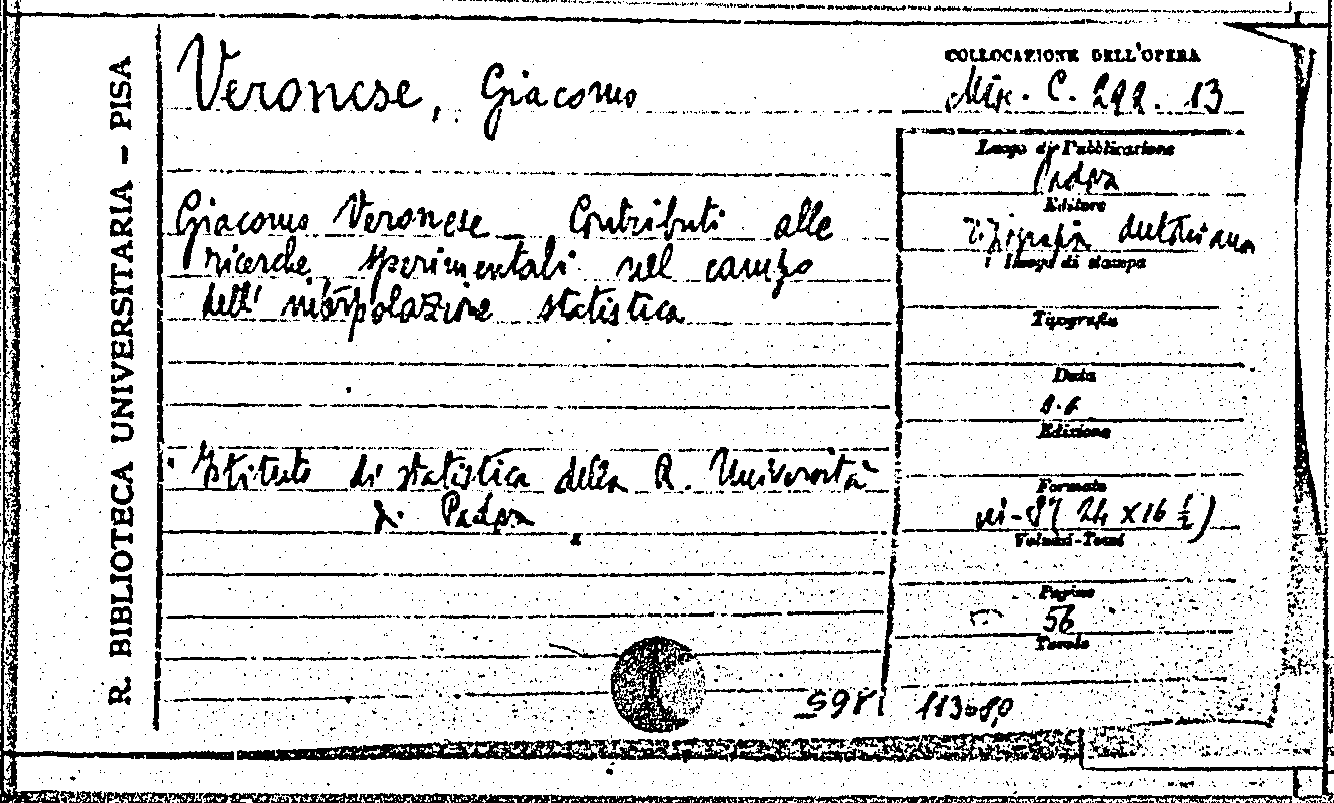 R. BIBLIOTECA UNIVERSITARIA - PISA
Veronese, Giacomo
COLLOCAZIONE DELL'OPERA
Misc. C. 292. 13
Luogo di Pubblicazione
Padova
Giacomo Veronese – Contributi alle
ricerche sperimentali nel campo
dell'interpolazione statistica
Editore
Tipografia
Luogo di stampa
Tipografia
Data
Edizione
Istituto di statistica della R. Università
di Padova
Formato
24 x 16 ½)
Volumi-Tomi
Pagine
56
Tavole
598